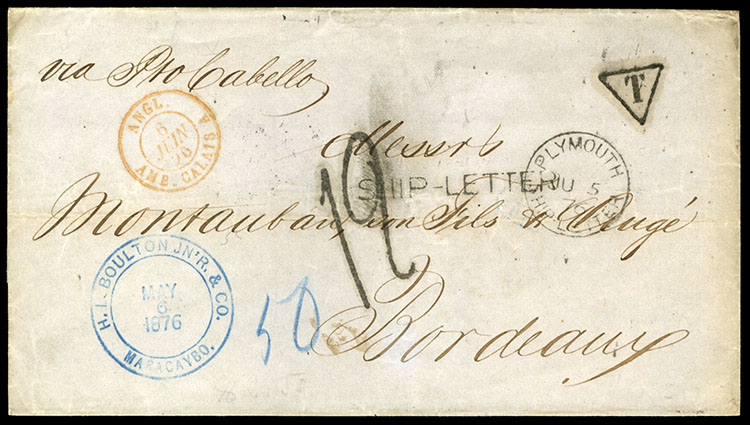 via Pto Cabello
T
ANGL.
6
JUIN
76
AMB. CALAIS A
Messrs
PLYMOUTH
JU 5
76
SHIP LETTER
SHIP-LETTER
12
Montauban, von Fils &
H. L. BOULTON JN'R. & CO.
MAY
6
1876
MARACAYBO.
50
Bordeaux